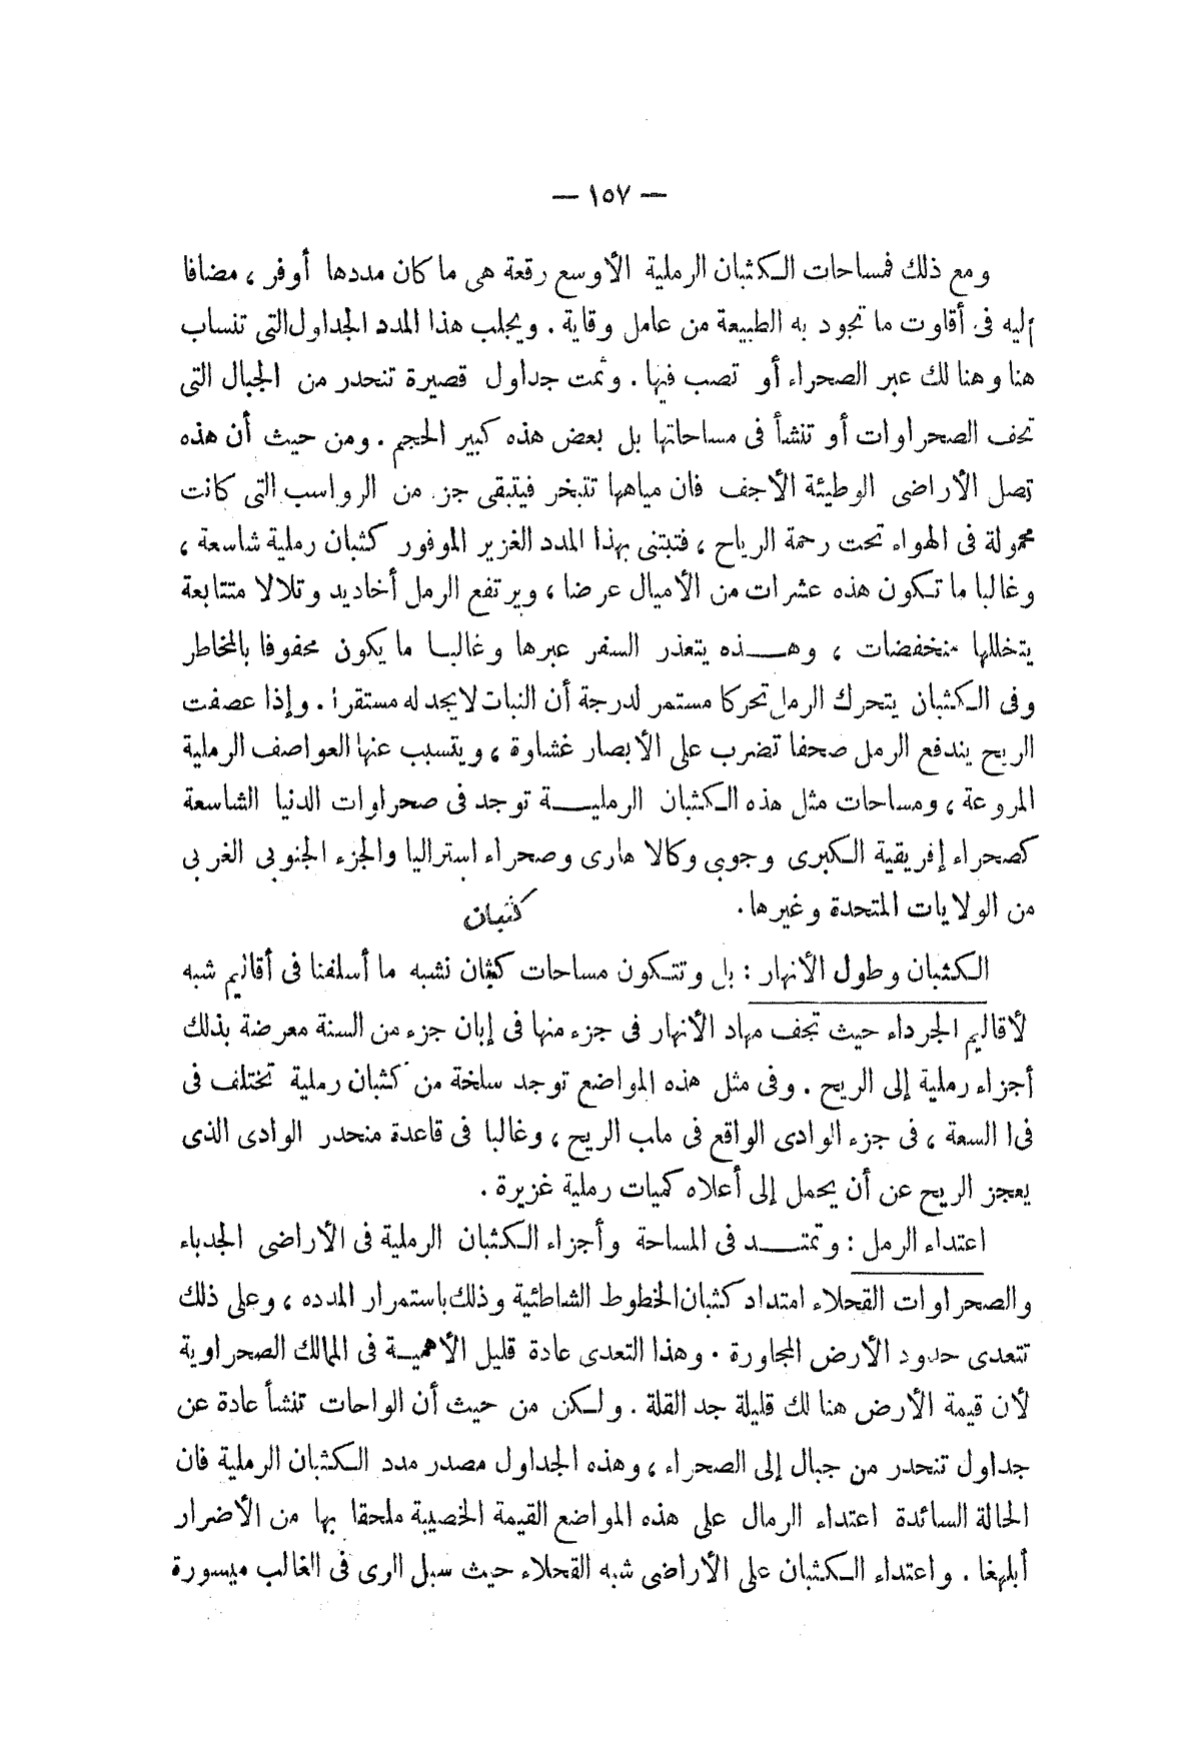 — ١٥٧ —
ومع ذلك فمساحات الكثبان الرملية الأوسع رقعة هى ما كان مددها أوفر ، مضافا
إليه فى أقاوت ما تجود به الطبيعة من عامل وقاية . ويجلب هذا المدد الجداول التى تنساب
هنا وهنا لك عبر الصحراء أو تصب فيها . وثمت جداول قصيرة تنحدر من الجبال التى
تحف الصحراوات أو تنشأ فى مساحاتها بل بعض هذه كبير الحجم . ومن حيث أن هذه
تصل الأراضى الوطيئة الأجف فان مياهها تتبخر فيتبقى جزء من الرواسب التى كانت
محمولة فى الهواء تحت رحمة الرياح ، فتبتنى بهذا المدد الغزير الموفور كثبان رملية شاسعة ،
وغالبا ما تكون هذه عشرات من الأميال عرضا ، ويرتفع الرمل أخاديد وتلالا متتابعة
يتخللها منخفضات ، وهذه يتعذر السفر عبرها وغالبا ما يكون محفوفا بالمخاطر
وفى الكثبان يتحرك الرمل تحركا مستمر لدرجة أن النبات لايجد له مستقرا . وإذا عصفت
الريح يندفع الرمل صحفا تضرب على الأبصار غشاوة ، ويتسبب عنها العواصف الرملية
المروعة ، ومساحات مثل هذه الكثبان الرملية توجد فى صحراوات الدنيا الشاسعة
كصحراء إفريقية الكبرى وجوبى وكالا هارى وصحراء استراليا والجزء الجنوبى الغربى
من الولايات المتحدة وغيرها .
كثبان
الكثبان وطول الأنهار : بل وتتكون مساحات كثبان نشبه ما أسلفنا فى أقاليم شبه
لأقاليم الجرداء حيث تجف مهاد الأنهار فى جزء منها فى إبان جزء من السنة معرضة بذلك
أجزاء رملية إلى الريح . وفى مثل هذه المواضع توجد سلخة من كثبان رملية تختلف فى
فى السعة ، فى جزء الوادى الواقع فى ماب الريح ، وغالبا فى قاعدة منحدر الوادى الذى
يعجز الريح عن أن يحمل إلى أعلاه كميات رملية غزيرة .
اعتداء الرمل : وتمتد فى المساحة وأجزاء الكثبان الرملية فى الأراضى الجدباء
والصحراوات القحلاء امتداد كثبان الخطوط الشاطئية وذلك باستمرار المدده ، وعلى ذلك
تتعدى حدود الأرض المجاورة . وهذا التعدى عادة قليل الأهمية فى الممالك الصحراوية
لأن قيمة الأرض هنا لك قليلة جد القلة . ولكن من حيث أن الواحات تنشأ عادة عن
جداول تنحدر من جبال إلى الصحراء ، وهذه الجداول مصدر مدد الكثبان الرملية فان
الحالة السائدة اعتداء الرمال على هذه المواضع القيمة الخصيبة ملحقا بها من الأضرار
أبلغها . واعتداء الكثبان على الأراضى شبه القحلاء حيث سبل الرى فى الغالب ميسورة